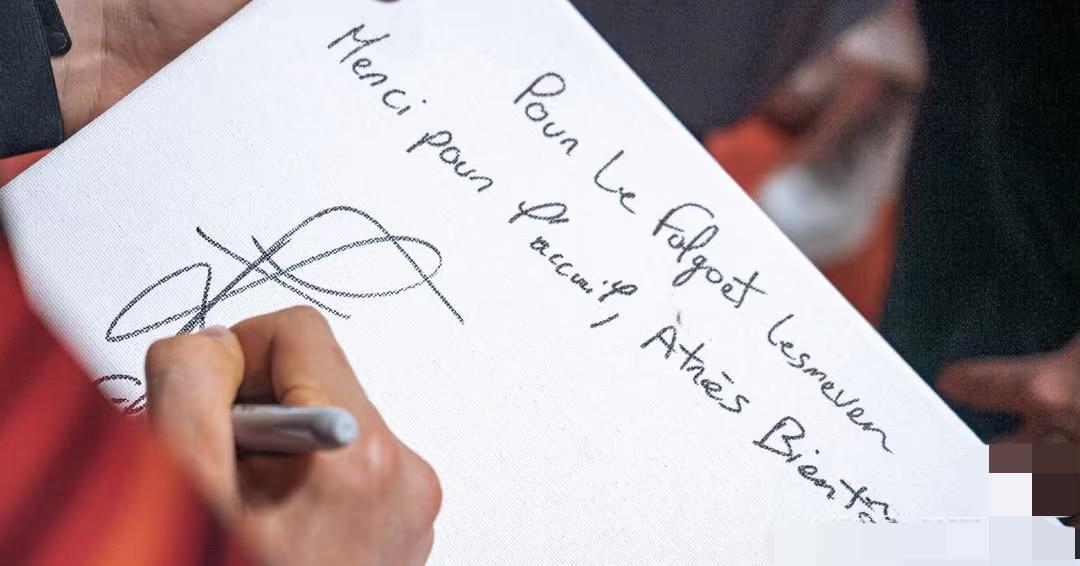 Pour Le Folgoet Lesneven
Merci pour l'accueil, À très Bientôt